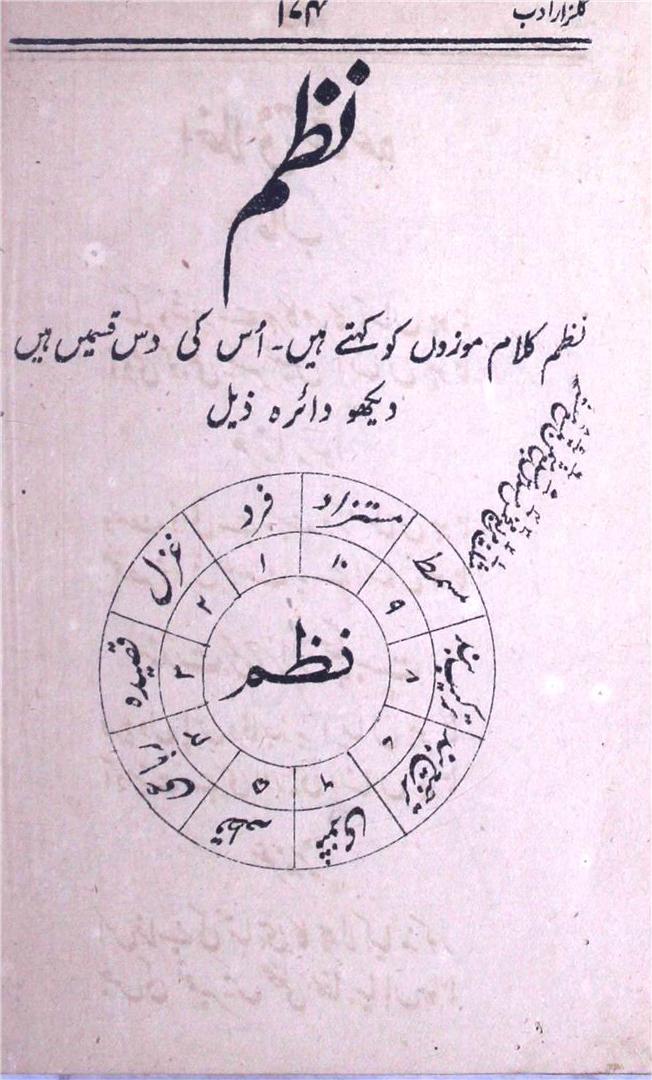 گلزار ادب
۱۷۴
نظم
نظم کلام موزوں کو کہتے ہیں۔ اُس کی دس قسمیں ہیں
دیکھو دائرہ ذیل
فرد
۱
غزل
۲
قصیدہ
۳
رباعی
۴
قطعہ
۵
مثنوی
۶
ترجیع بند
۷
ترکیب بند
۸
مسمط
۹
مستزاد
۱۰
نظم